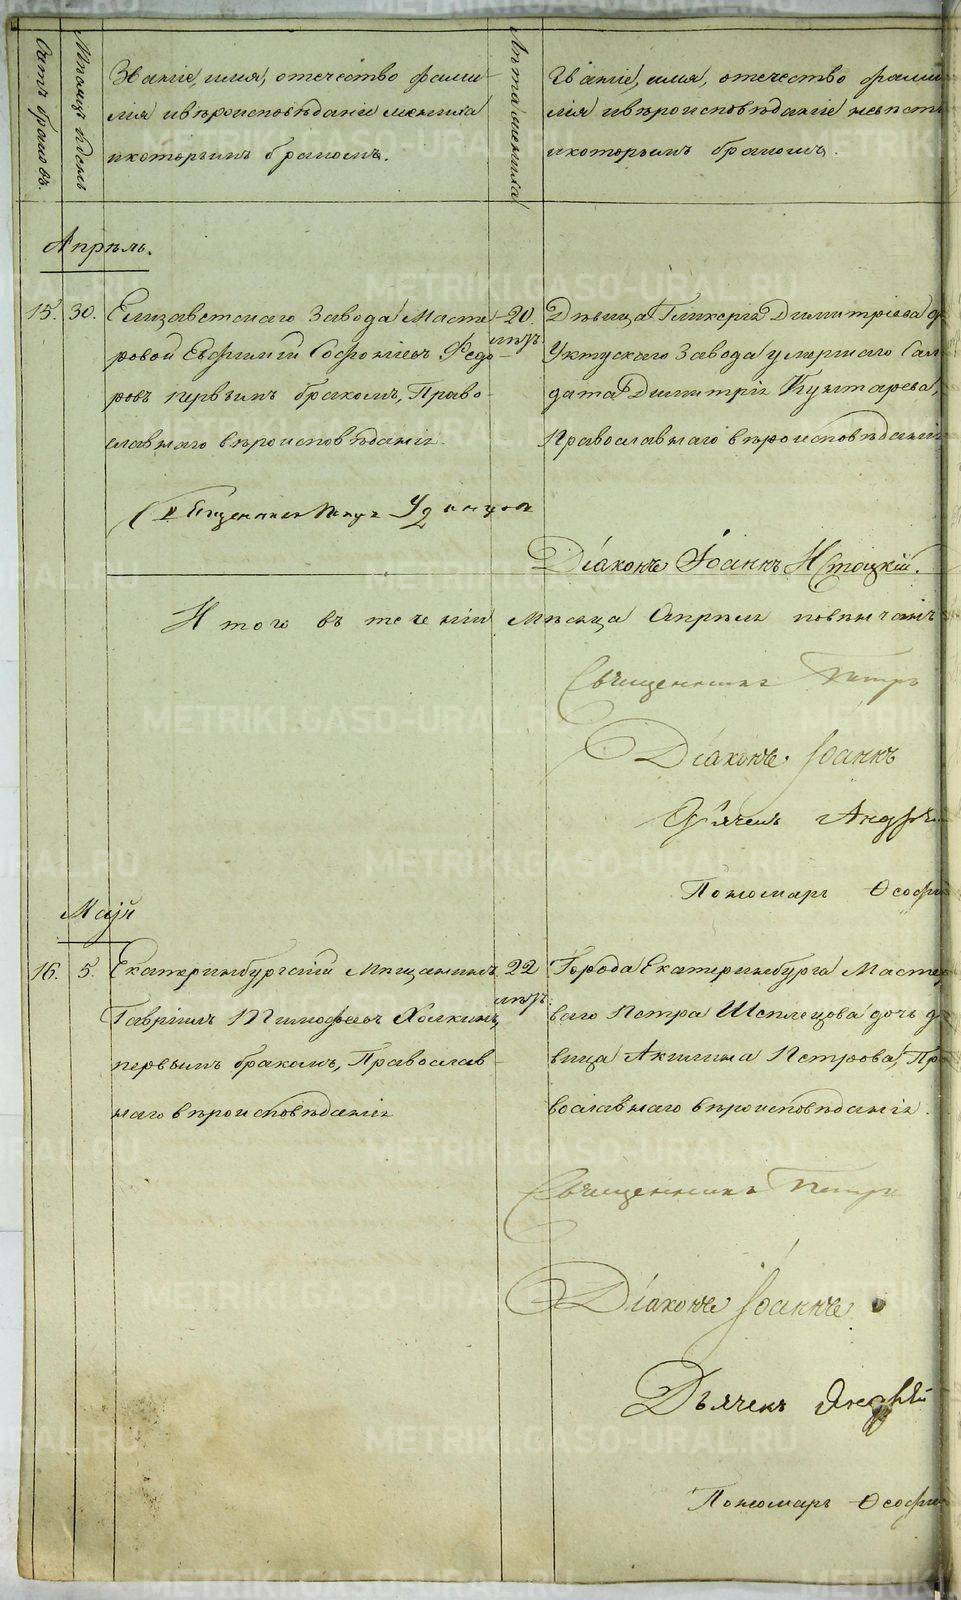 Счетъ браковъ.
Мѣсяцъ и день
Званіе, имя, отечество фами-
лія и вѣроисповѣданіе жениха
и которымъ бракомъ.
Лѣта жениха
Званіе, имя, отечество фами
лія и вѣроисповѣданіе невѣст
и которымъ бракомъ.
Апрѣль.
15. 30. Елизаветскаго Завода Масте-
ровой Евфимій Софоніевъ Федо-
ровъ первымъ бракомъ, Право-
славнаго вѣроисповѣданія.
20.
Дѣвица Гликерія Димитріева
Уктускаго Завода умершаго Сал
дата Димитрія
Православнаго вѣроисповѣданія
Священникъ Петръ Удинцов
Діаконъ Іоаннъ
Итого въ теченіи Мѣсяца Апрѣля повѣнчанъ
Священникъ Петръ
Діаконъ Іоаннъ
Дьячекъ Андрѣ
Пономарь Ѳеоф
Маій
16. 5. Екатеринбургскій Мѣщанинъ
Гавріилъ Тимофѣевъ
первымъ бракомъ, Православ-
наго вѣроисповѣданія
22
Города Екатеринбурга Масте
ваго Петра дочь дѣ
вица Акилина Петрова, Пр
вославнаго вѣроисповѣданія.
Священникъ Петръ
Діаконъ Іоаннъ
Дьячекъ Андрѣй
Пономарь Ѳеоф
METRIKI.GASO-URAL.RU